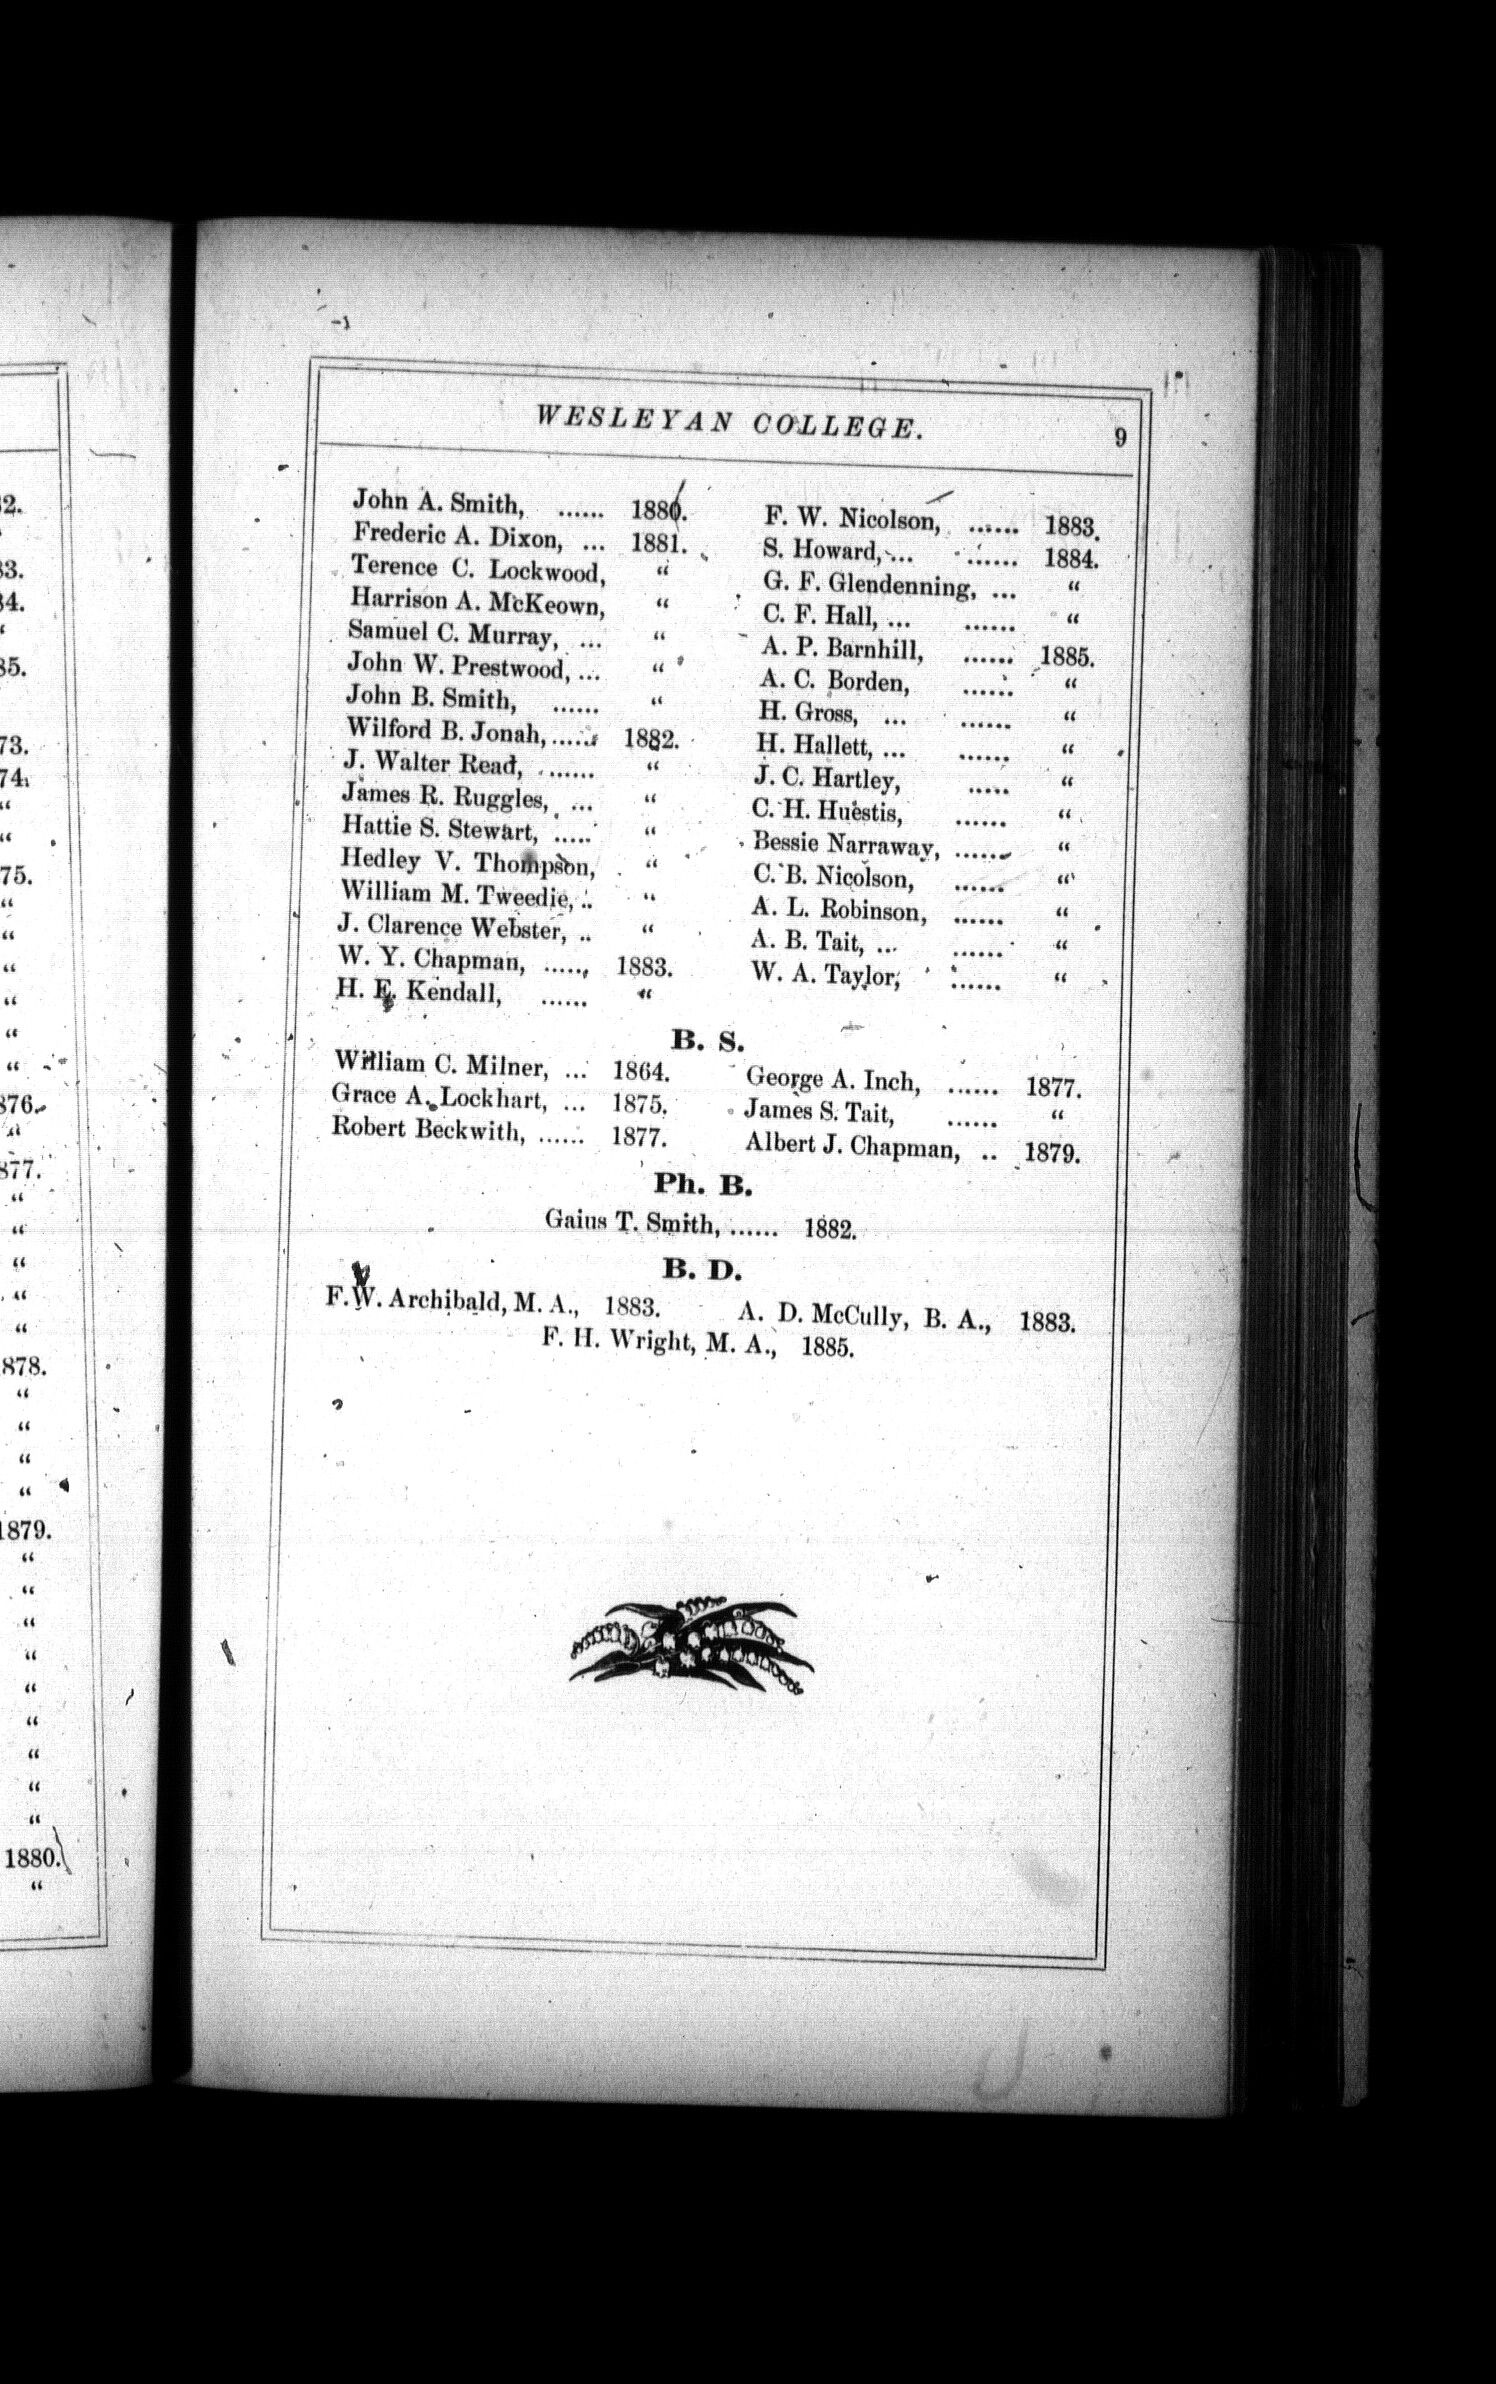 WESLEYAN COLLEGE. 9
John A. Smith, ...... 1880.
Frederic A. Dixon, ... 1881.
Terence C. Lockwood, "
Harrison A. McKeown, "
Samuel C. Murray, ... "
John W. Prestwood, ... "
John B. Smith, ...... "
Wilford B. Jonah, ...... 1882.
J. Walter Read, ...... "
James R. Ruggles, ... "
Hattie S. Stewart, ..... "
Hedley V. Thompson, "
William M. Tweedie, .. "
J. Clarence Webster, .. "
W. Y. Chapman, ...... 1883.
H. E. Kendall, ...... "
F. W. Nicolson, ...... 1883.
S. Howard, ... ...... 1884.
G. F. Glendenning, ... "
C. F. Hall, ... ...... "
A. P. Barnhill, ...... 1885.
A. C. Borden, ...... "
H. Gross, ... ...... "
H. Hallett, ... ...... "
J. C. Hartley, ..... "
C. H. Huestis, ...... "
Bessie Narraway, ...... "
C. B. Nicolson, ...... "
A. L. Robinson, ...... "
A. B. Tait, ... ...... "
W. A. Taylor, ...... "
B. S.
William C. Milner, ... 1864.
Grace A. Lockhart, ... 1875.
Robert Beckwith, ...... 1877.
George A. Inch, ...... 1877.
James S. Tait, ...... "
Albert J. Chapman, .. 1879.
Ph. B.
Gaius T. Smith, ...... 1882.
B. D.
F. W. Archibald, M. A., 1883. A. D. McCully, B. A., 1883.
F. H. Wright, M. A., 1885.